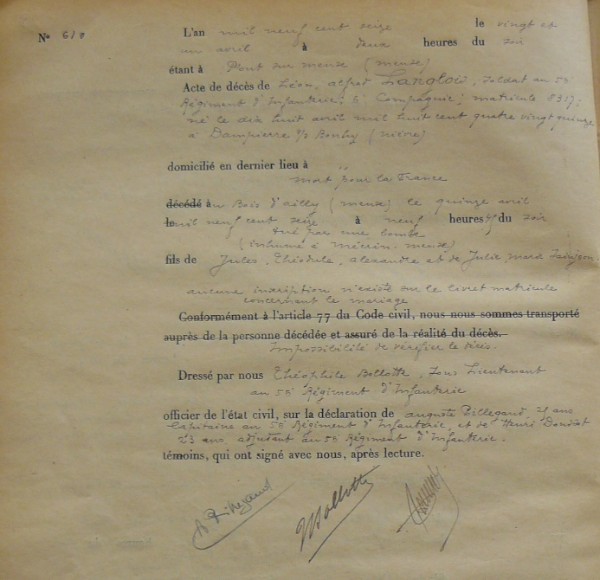 L'an mil neuf cent seize le vingt et
Nº
un avril à deux heures du soir
étant à Pont sur meuse (meuse)
Acte de décès de Léon, alfred Langlois, soldat au 56
Régiment d'Infanterie, 5 Compagnie; matricule 8317;
né le dix huit avril mil huit cent quatre vingt quinze
à Dampierre s/s Bouhy (nièvre)
domicilié en dernier lieu à
mort pour la France
décédé à au Bois d'ailly (meuse) le quinze avril
le mil neuf cent seize à neuf heures du soir
tué par une bombe
(inhumé à mécrin-meuse)
fils de Jules, Théodule, alexandre et de Julie
aucune inscription n'existe sur le livret matricule
concernant le mariage
Conformément à l'article 77 du Code civil, nous nous sommes transporté
auprès de la personne décédée et assuré de la réalité du décès.
Impossibilité de vérifier le décès.
Dressé par nous Théophile Bollotte, Sous Lieutenant
au 56 Régiment d'Infanterie
officier de l'état civil, sur la déclaration de auguste ans
Capitaine au 56 Régiment d'Infanterie, et de Henri
23 ans, adjudant au 56 Régiment d'infanterie.
témoins, qui ont signé avec nous, après lecture.
Bollotte